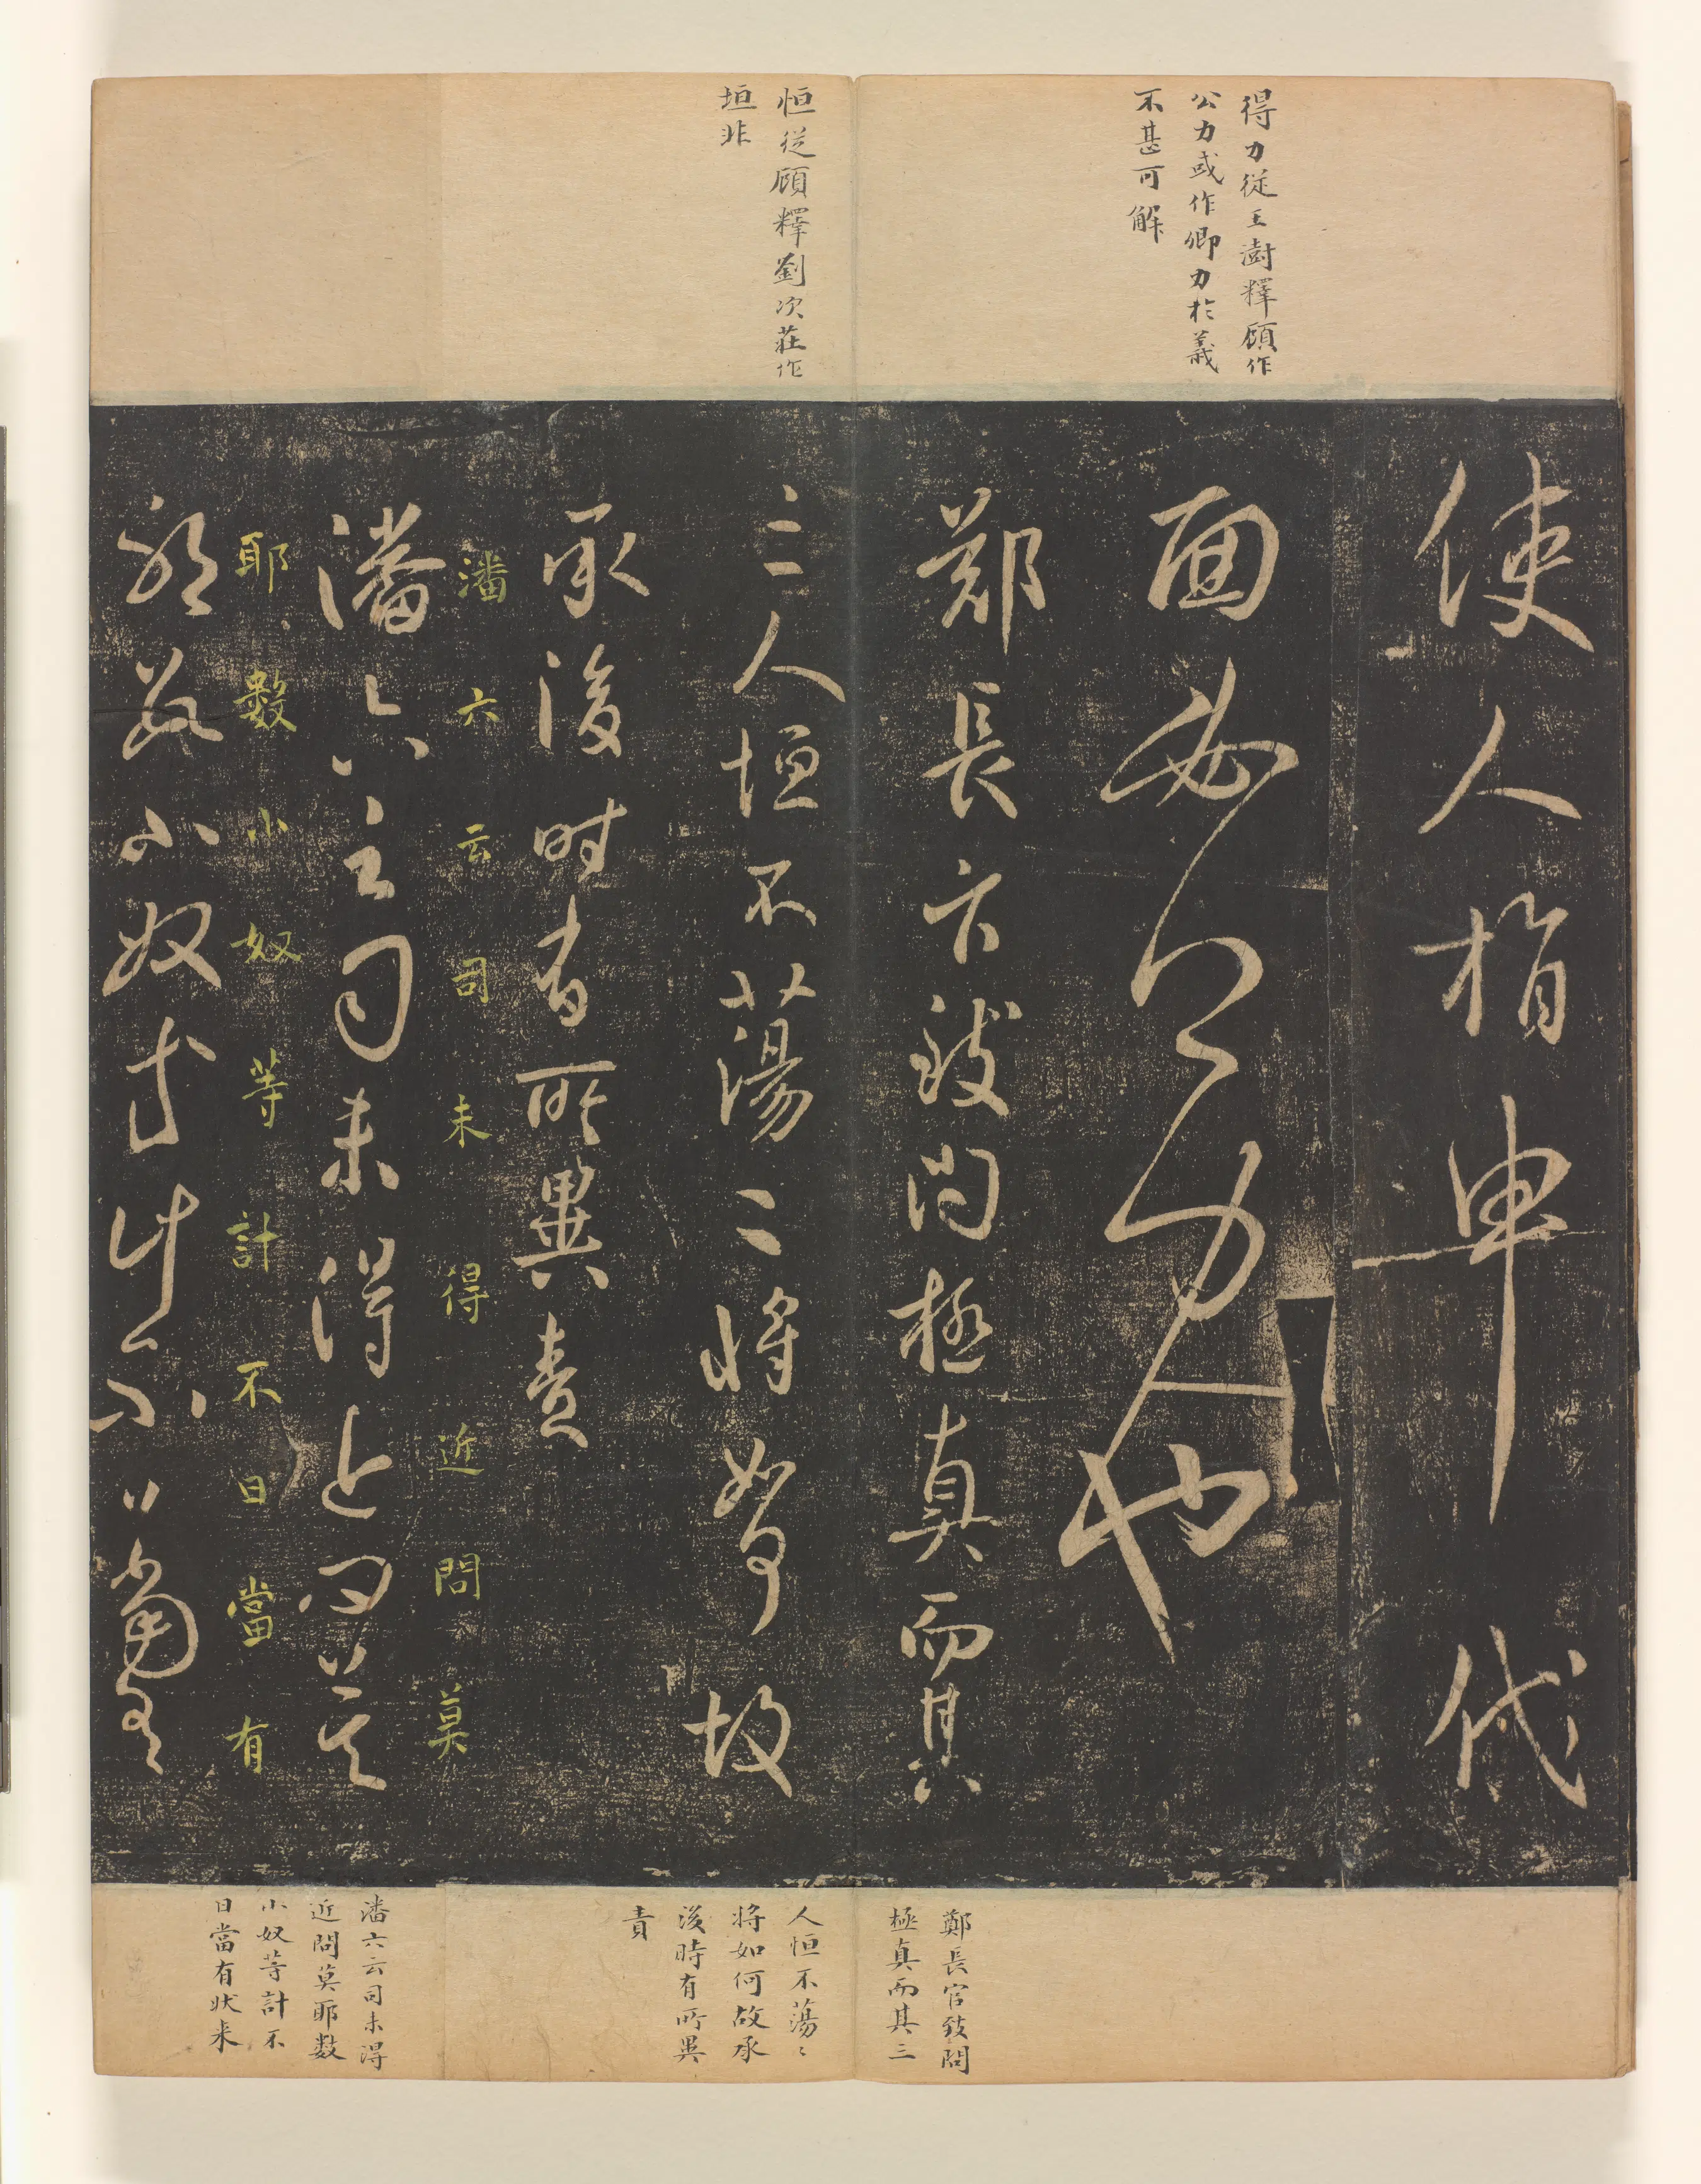 得力從王澍釋顧作
公力或作卿力於義
不甚可解
恒從顧釋劉次莊作
垣非
使人指申代
面必得力也
鄭長官致問極真而其
三人恒不蕩〻將如何故
承後時有所異責
潘六云司未得近問莫
潘六云司未得近問莫
耶數小奴等計不日當有
耶數小奴等計不日當有
鄭長官致問
極真而其三
人恒不蕩〻
將如何故承
後時有所異
責
潘六云司未得
近問莫耶數
小奴等計不
日當有狀來